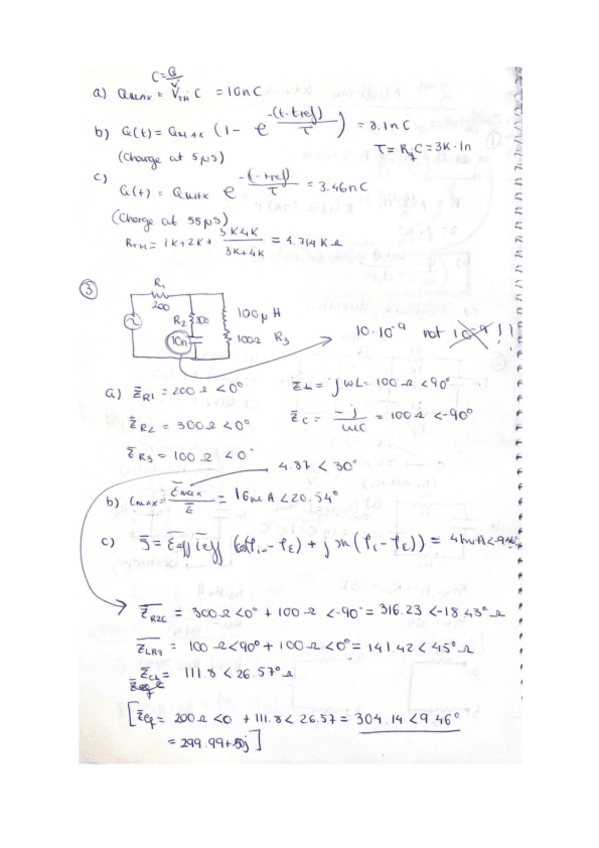 C = Q/V
a) Qmax = VTH C = 10nC
b) Q(t) = Qmax (1 - e^(-(t-tref)/τ)) = 8.1nC
(Charge at 5μs)
τ = Rq C = 3K·1n
c)
Q(t) = Qmax e^(-(t-tref)/τ) = 3.46nC
(Charge at 55μs)
RTH = 1K+2K+ 3K4K/3K+4K = 4.714KΩ
③
R1
200
R2 300
10n
100μH
100Ω R3
10·10^-9 not 10^-9!!
a) Z̄R1 = 200Ω <0°
Z̄L = jωL = 100Ω <90°
Z̄R2 = 300Ω <0°
Z̄C = -j/ωC = 100Ω <-90°
Z̄R3 = 100Ω <0°
4.87 < 30°
b) imax = ε̄max/Z̄ = 16mA <20.54°
c) S̄ = ε̄eff īeff (cos(φi - φε) + j sin(φi - φε)) =
Z̄R2C = 300Ω<0° + 100Ω <-90° = 316.23 <-18.43°Ω
Z̄LR3 = 100Ω<90° + 100Ω<0° = 141.42 < 45°Ω
111.8 < 26.57°Ω
[Z̄eq = 200Ω <0 + 111.8 < 26.57 = 304.14 <9.46°
= 299.99+50j]